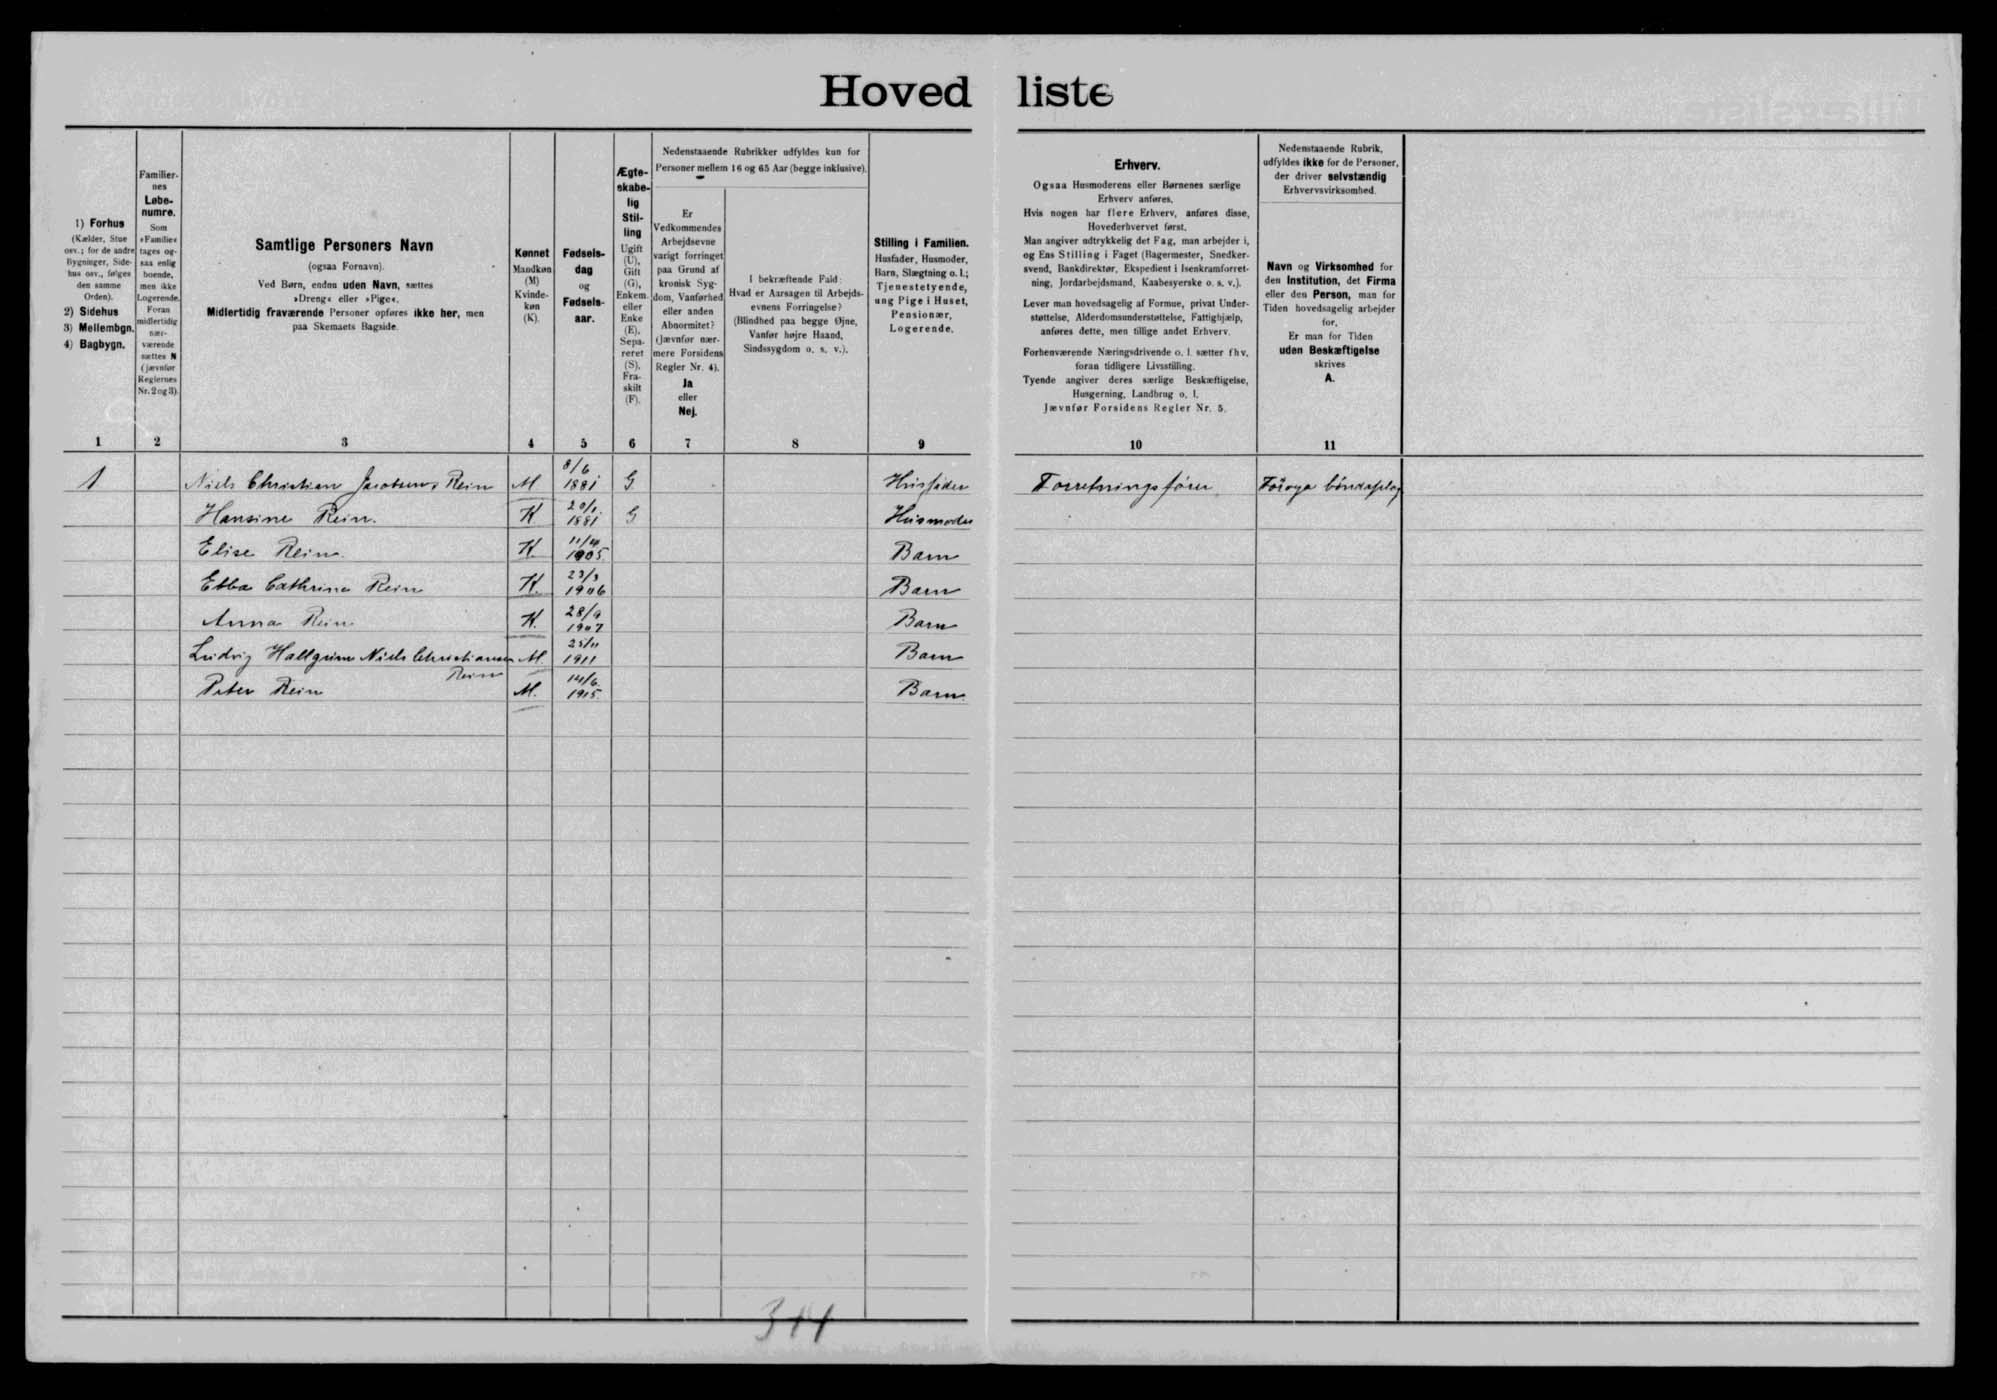 Hovedliste
1) Forhus
(Kælder, Stue
osv.; for de andre
Bygninger, Side-
hus osv., følges
den samme
Orden).
2) Sidehus
3) Mellembgn.
4) Bagbygn.
Familier-
nes
Løbe-
numre.
Som
»Familie«
tages og-
saa enlig
boende,
men ikke
Logerende.
Foran
midlertidig
nær-
værende
sættes N
(jævnfør
Reglernes
Nr. 2 og 3).
Samtlige Personers Navn
(ogsaa Fornavn).
Ved Børn, endnu uden Navn, sættes
»Dreng« eller »Pige«.
Midlertidig fraværende Personer opføres ikke her, men
paa Skemaets Bagside.
Kønnet
Mandkøn
(M)
Kvinde-
køn
(K).
Fødsels-
dag
og
Fødsels-
aar.
Ægte-
skabe-
lig
Stil-
ling
Ugift
(U),
Gift
(G),
Enkem.
eller
Enke
(E),
Sepa-
reret
(S),
Fra-
skilt
(F).
Nedenstaaende Rubrikker udfyldes kun for
Personer mellem 16 og 65 Aar (begge inklusive).
Er
Vedkommendes
Arbejdsevne
varigt forringet
paa Grund af
kronisk Syg-
dom, Vanførhed
eller anden
Abnormitet?
(Jævnfør nær-
mere Forsidens
Regler Nr. 4).
Ja
eller
Nej.
I bekræftende Fald:
Hvad er Aarsagen til Arbejds-
evnens Forringelse?
(Blindhed paa begge Øjne,
Vanfør højre Haand,
Sindssygdom o. s. v.).
Stilling i Familien.
Husfader, Husmoder,
Barn, Slægtning o. l.;
Tjenestetyende,
ung Pige i Huset,
Pensionær,
Logerende.
Erhverv.
Ogsaa Husmoderens eller Børnenes særlige
Erhverv anføres.
Hvis nogen har flere Erhverv, anføres disse,
Hovederhvervet først.
Man angiver udtrykkelig det Fag, man arbejder i,
og Ens Stilling i Faget (Bagermester, Snedker-
svend, Bankdirektør, Ekspedient i Isenkramforret-
ning, Jordarbejdsmand, Kaabesyerske o. s. v.).
Lever man hovedsagelig af Formue, privat Under-
støttelse, Alderdomsunderstøttelse, Fattighjælp,
anføres dette, men tillige andet Erhverv.
Forhenværende Næringsdrivende o. l. sætter fhv.
foran tidligere Livsstilling.
Tyende angiver deres særlige Beskæftigelse,
Husgerning, Landbrug o. l.
Jævnfør Forsidens Regler Nr. 5.
Nedenstaaende Rubrik,
udfyldes ikke for de Personer,
der driver selvstændig
Erhvervsvirksomhed.
Navn og Virksomhed for
den Institution, det Firma
eller den Person, man for
Tiden hovedsagelig arbejder
for.
Er man for Tiden
uden Beskæftigelse
skrives
A.
1 2 3 4 5 6 7 8 9 10 11
1 Niels Christian Jacobsens Rein M 8/6 1881 G Husfader Forretningsfører
Hansine Rein. K 1881 G Husmoder
Elise Rein. K. 11/4 1905. Barn
Ebba Cathrina Rein K. 23/3 1906 Barn
Anna Rein K. 28/9 1907 Barn
Ludvig Hallgrim Niels Christiansen Rein M. 25/11 1911 Barn
Peter Rein M. 14/6 1915. Barn.